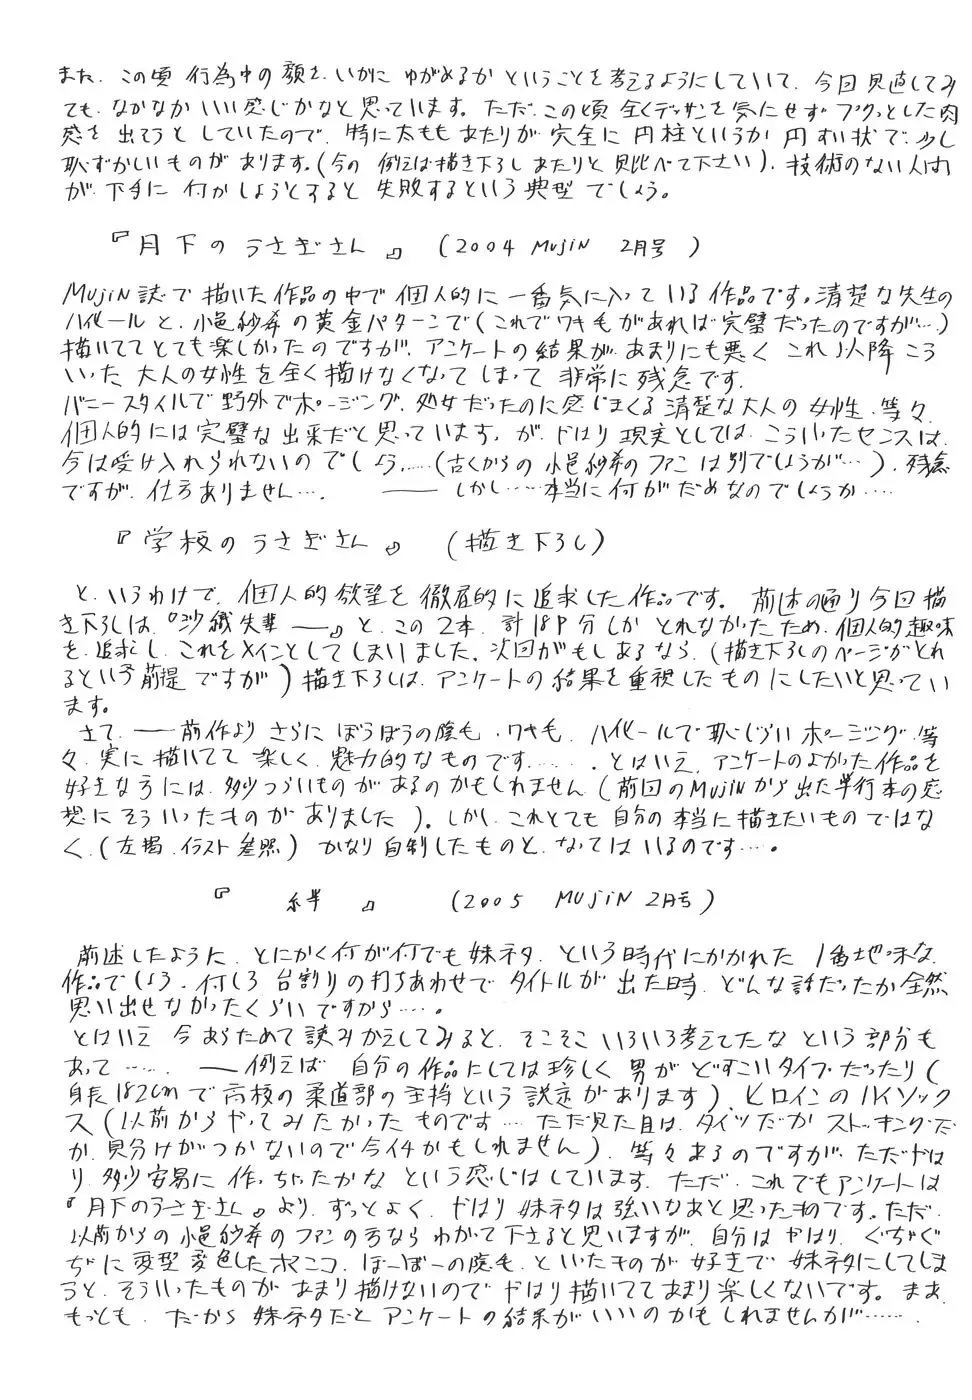 また、この頃 行為中の顔を、いかに ゆがめるか ということを考えるようにしていて、今回見直してみ
ても、なかなかいい感じかなと思っています。ただ、この頃 全くデッサンを気にせず プクッとした肉
感を 出そうと していたので、特に太ももあたりが 完全に 円柱というか 円すい状で、少し
恥ずかしいものがあります。(今の 例えば描き下ろし あたりと 見比べて下さい)、技術のない人間
が、下手に 何かしようとすると 失敗するという 典型 でしょう。
『月下のうさぎさん』 (2004 MUJIN 2月号)
MUJIN誌で描いた作品の中で 個人的に 一番気に入っている作品です。清楚な先生の
ハイヒールと、小邑紗希の黄金パターンで(これでワキ毛があれば完璧だったのですが…)
描いててとても楽しかったのですが、アンケートの結果が、あまりにも悪く これ以降こう
いった 大人の女性を全く描けなくなってしまって 非常に残念です。
バニースタイルで野外でポージング、処女だったのに感じまくる清楚な大人の女性、等々、
個人的には完璧な出来だと思っています。が、やはり現実としては、こういったセンスは、
今は受け入れられないのでしょう……(古くからの小邑紗希のファンは別でしょうが…)、残念
ですが、仕方ありません…。 ―― しかし……本当に何がだめなのでしょうか……
『学校のうさぎさん』 (描き下ろし)
と、いうわけで、個人的欲望を徹底的に追求した作品です。前述の通り今回描
き下ろしは、『沙織先輩―』と、この2本、計18P分しかとれなかったため、個人的趣味
を、追求し、これをメインとしてしまいました。次回がもしあるなら、(描き下ろしのページがとれ
るという前提ですが)描き下ろしは、アンケートの結果を重視したものにしたいと思ってい
ます。
さて、――前作よりさらにぼうぼうの陰毛、ワキ毛、ハイヒールで恥じらいポージング、等
々、実に描いてて楽しく、魅力的なものです……。とはいえ、アンケートのよかった作品を
好きな方には、多少つらいものがあるのかもしれません(前回のMUJINから出た単行本の感
想にそういったものがありました)。しかし、これとても自分の本当に描きたいものではな
く、(左掲、イラスト参照) かなり自制したものと、なってはいるのです…。
『 絆 』 (2005 MUJIN 2月号)
前述したように、とにかく何が何でも妹ネタ、という時代にかかれた1番地味な
作品でしょう。何しろ台割りの打ちあわせでタイトルが出た時、どんな話だったか全然
思い出せなかったくらいですから…。
とはいえ 今あらためて読みかえしてみると、そこそこいろいろ考えてたなという部分も
あって……、――例えば 自分の作品にしては珍しく 男が どすこいタイプだったり(
身長182cmで高校の柔道部の主将という設定があります)、ヒロインのハイソック
ス(以前からやってみたかったものです…ただ見た目は、タイツだかストッキングだ
か、見分けがつかないので今イチかもしれません)、等々あるのですが、ただやは
り、多少安易に作っちゃったかなという感じはしています。ただ、これでもアンケートは
『月下のうさぎさん』より、ずっとよく、やはり妹ネタは強いなあと思ったものです。ただ、
以前からの小邑紗希のファンの方ならわかって下さると思いますが、自分はやはり、ぐちゃぐ
ちゃに変型変色したボコマンコ、ぼーぼーの陰毛、といったものが好きで妹ネタにしてしま
うと、そういったものがあまり描けないのでやはり描いててあまり楽しくないです。まあ、
もっとも、だから妹ネタだとアンケートの結果がいいのかもしれませんが……。